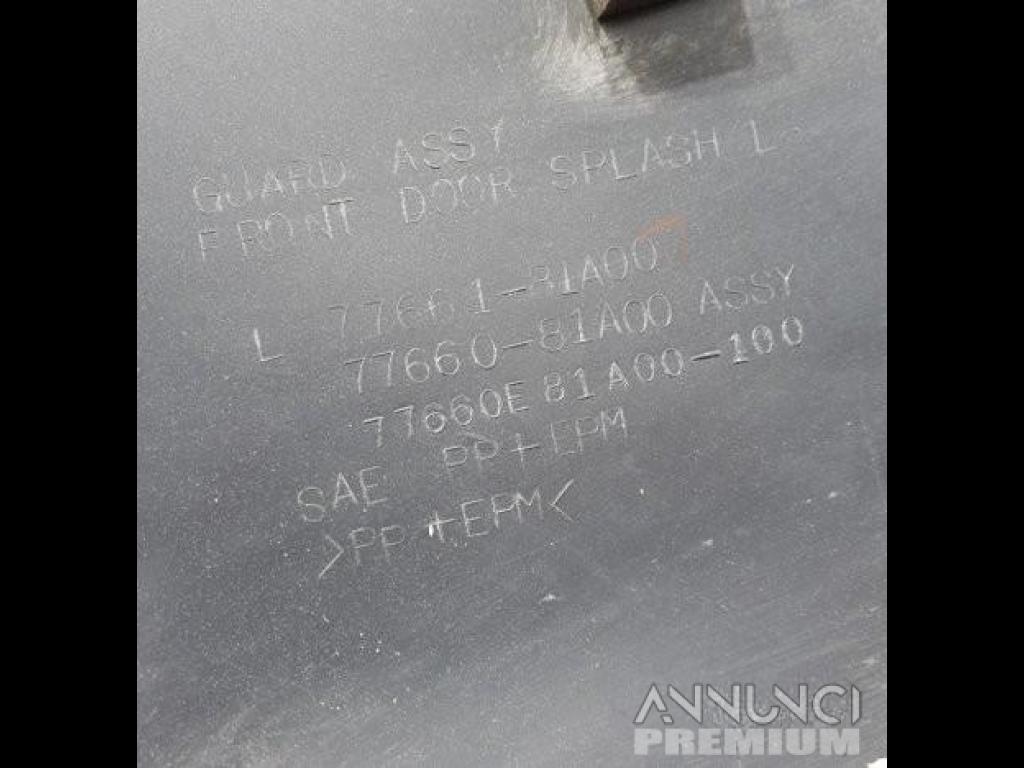 GUARD ASSY
FRONT DOOR SPLASH L
L 77661-81A00
77660-81A00 ASSY
77660E81A00-100
SAE PP+EPM
>PP+EPM<
ANNUNCI
PREMIUM